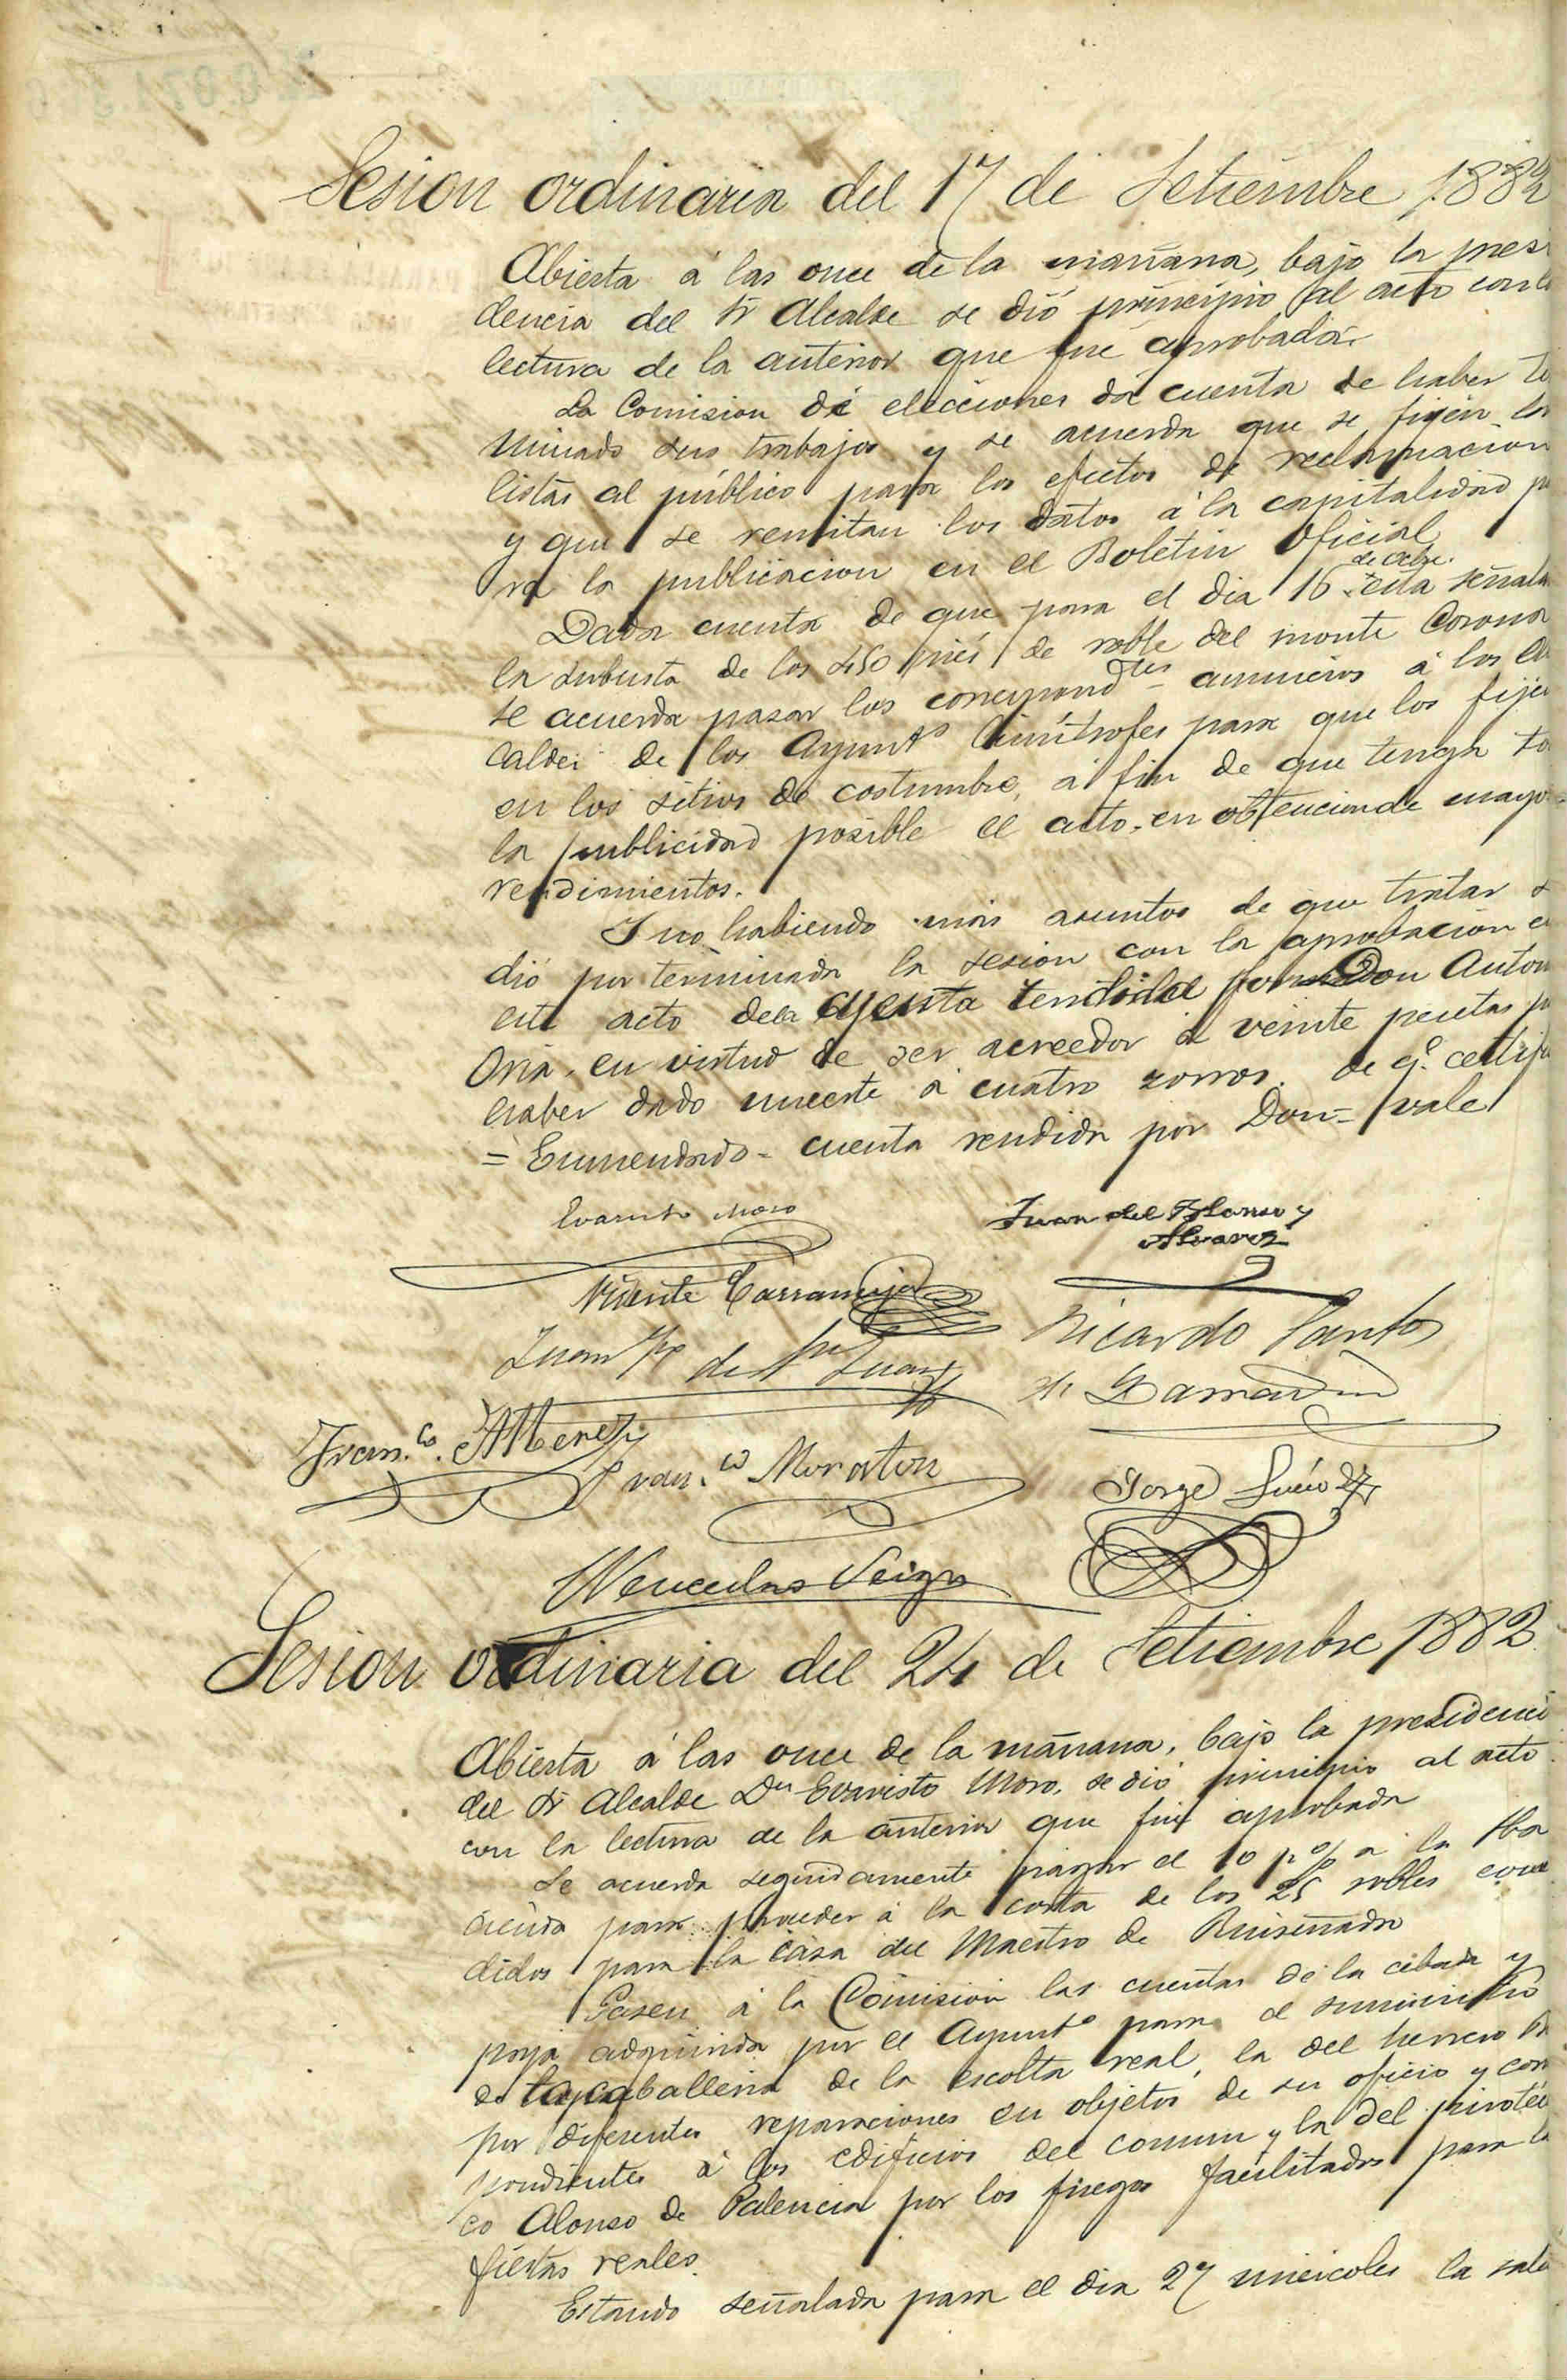 Sesion ordinaria del 17 de Setiembre 1882
Abierta á las once de la mañana, bajo la presi
dencia del Sr Alcalde se dió principio al acto con la
lectura de la anterior que fué aprobada.
La Comision de elecciones dá cuenta de haber ter
minado sus trabajos y se acuerda que se fijen las
listas al público para los efectos de reclamacion
y que se remitan los datos á la capitalidad pa
ra la publicacion en el Boletin Oficial
de Octbre.
Dada cuenta de que para el dia 16 está señala
la subasta de los 450 piés de roble del monte Corona
se acuerda pasar los correspondtes anuncios á los Al
caldes de los Ayuntos limítrofes para que los fijen
en los sitios de costumbre, á fin de que tenga to
la publicidad posible el acto, en obtencion de mayo
rendimientos.
Y no habiendo más asuntos de que tratar s
dió por terminada la sesion con la aprobacion en
este acto de la cuenta rendida por Don Anton
Oria, en virtud de ser acreedor á veinte pesetas p
haber dado muerte á cuatro zorros. de q.e certifi
= Enmendado - cuenta rendida por Don = vale
Evaristo Moro
Juan del Blanco y
Alvarez
Vicente Carramija
Juan de San Juan
Ricardo Santos
de Gamarín
Fran.co
Fran.co Moraton
Jorge
Wenceslao Veiga
Sesion ordinaria del 24 de Setiembre 1882
Abierta á las once de la mañana, bajo la presidenci
del Sr Alcalde Dn Evaristo Moro, se dió principio al acto
con la lectura de la anterior que fué aprobada
Se acuerda seguidamente pagar el 10 p% á la Ha
cienda para proceder á la corta de los 25 robles conce
didos para la casa del Maestro de Ruiseñada
Pasen á la Comision las cuentas de la cebada y
paja adquirida por el Ayunto para el suministro
de la caballeria de la escolta real, la del herrero
por diferentes reparaciones en objetos de su oficio y corr
pondientes á los edificios del comun y la del pirotéc
co Alonso de Palencia por los fuegos facilitados para la
fiestas reales.
Estando señalada para el dia 27 miércoles la sali